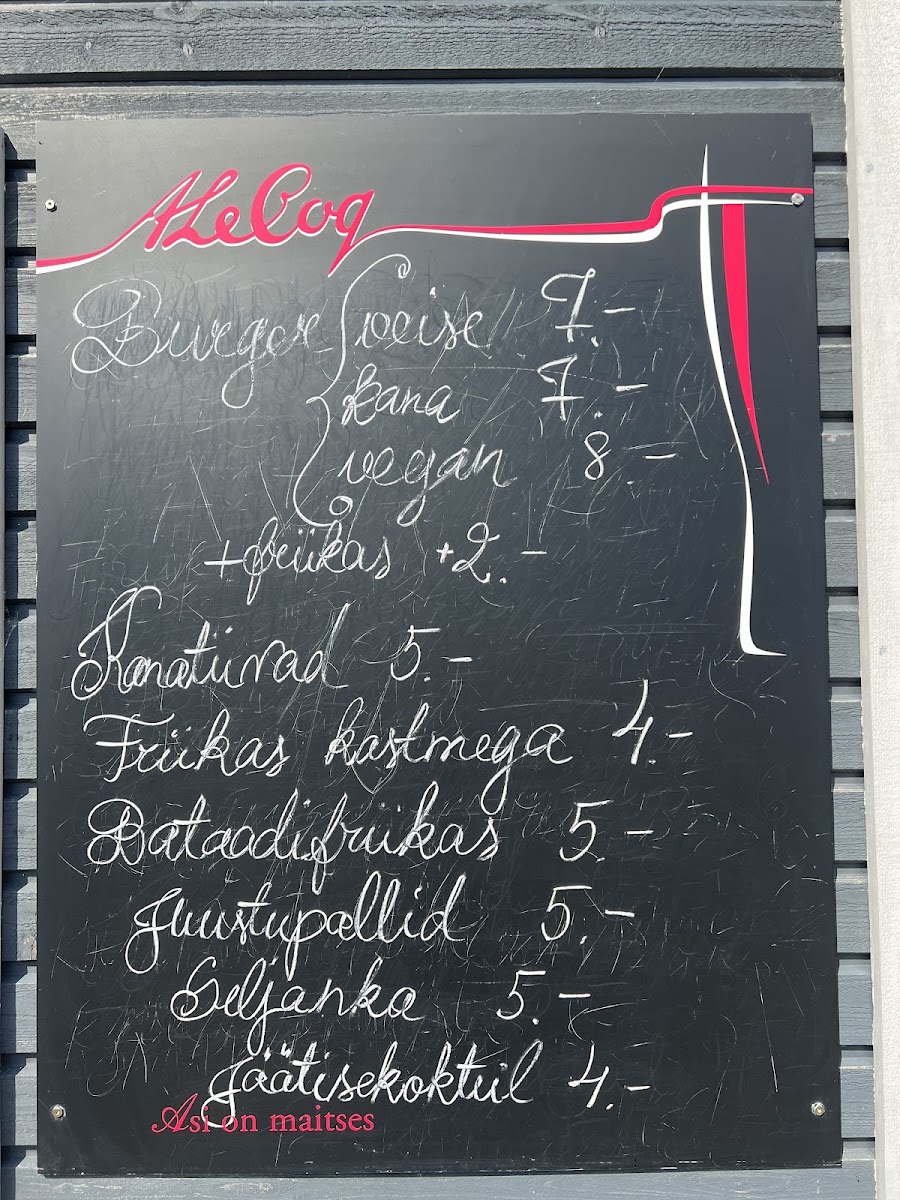 ALeCoq
Burger { veise 7.-
kana 7.-
vegan 8.-
+friikas +2.-
Kanatiivad 5.-
Friikas kastmega 4.-
Bataadifriikas 5.-
Juustupallid 5.-
Seljanka 5.-
Jäätisekokteil 4.-
Asi on maitses